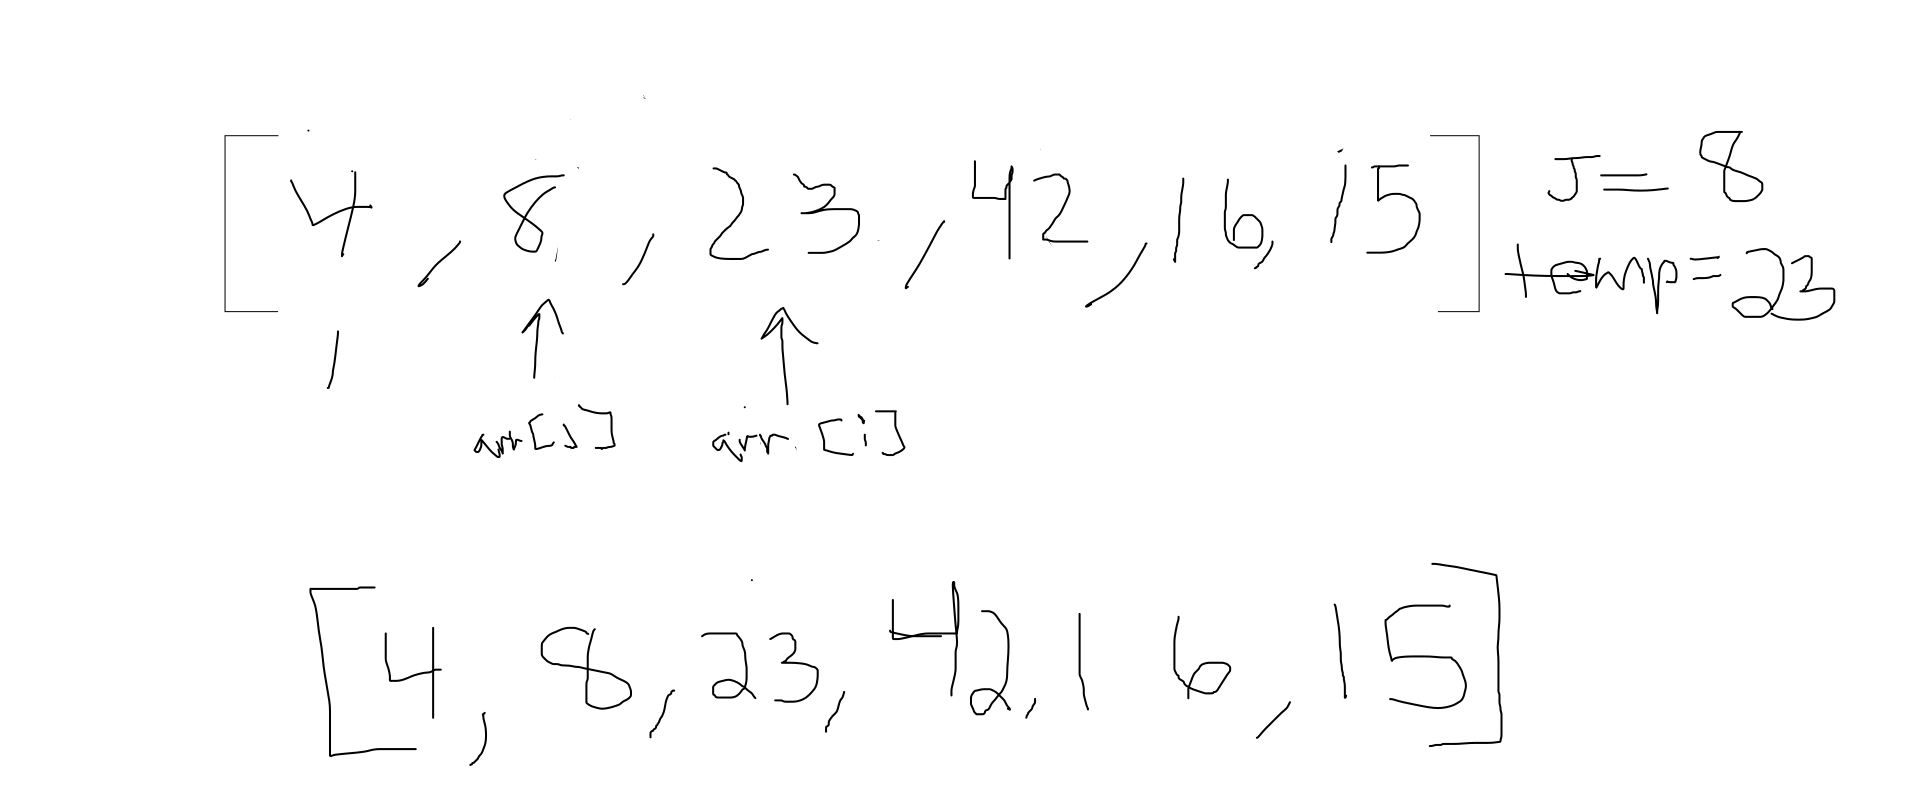 [4, 8, 23, 42, 16, 15] J=8
temp=23
arr[j] arr[i]
[4, 8, 23, 42, 16, 15]